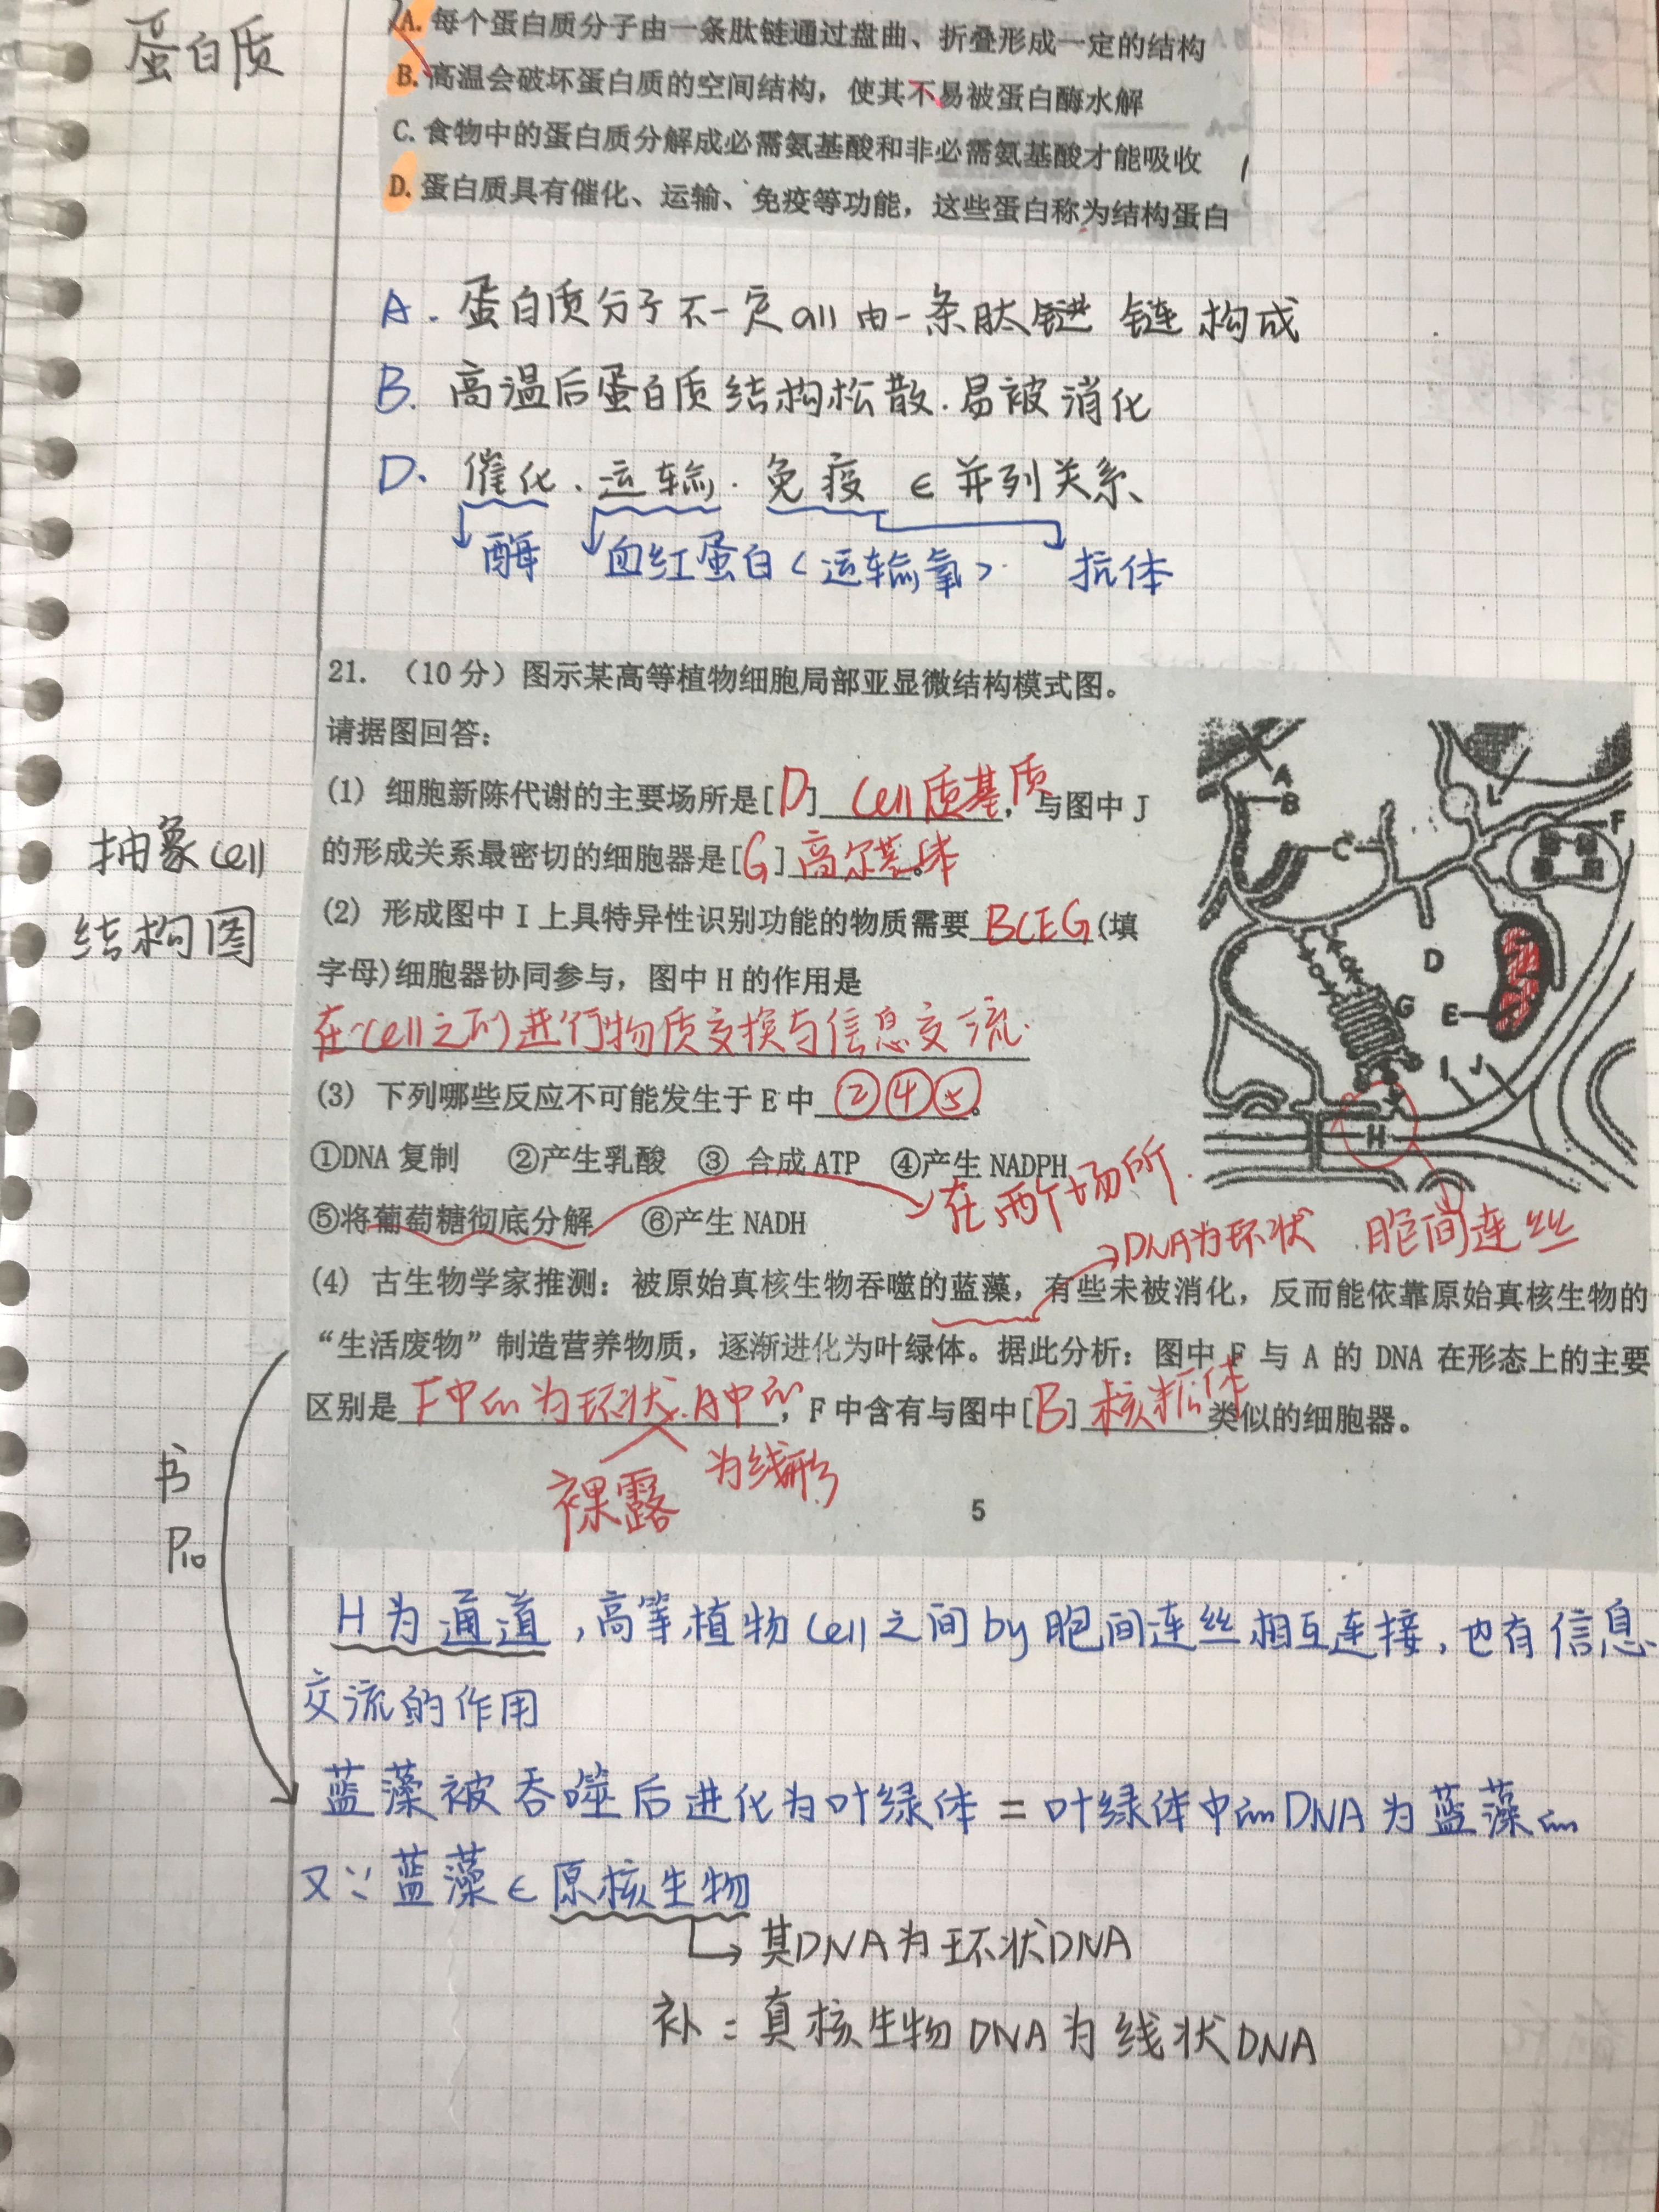 蛋白质
A. 每个蛋白质分子由一条肽链通过盘曲、折叠形成一定的结构
B. 高温会破坏蛋白质的空间结构，使其不易被蛋白酶水解
C. 食物中的蛋白质分解成必需氨基酸和非必需氨基酸才能吸收
D. 蛋白质具有催化、运输、免疫等功能，这些蛋白称为结构蛋白
A. 蛋白质分子不一定all由一条肽键 链构成
B. 高温后蛋白质结构松散.易被消化
D. 催化、运输、免疫 ∈ 并列关系、
酶 血红蛋白<运输氧> 抗体
抽象cell
结构图
21. （10分）图示某高等植物细胞局部亚显微结构模式图。
请据图回答：
(1) 细胞新陈代谢的主要场所是[D] cell质基质，与图中J
的形成关系最密切的细胞器是[G]高尔基体。
(2) 形成图中I上具特异性识别功能的物质需要 BCEG (填
字母)细胞器协同参与，图中H的作用是
在cell之间进行物质交换与信息交流.
(3) 下列哪些反应不可能发生于E中 ②④⑤。
①DNA复制 ②产生乳酸 ③ 合成ATP ④产生NADPH
⑤将葡萄糖彻底分解 ⑥产生NADH
在两个场所.
A
B
C
L
F
D
G
E
I
J
H
→DNA为环状 胞间连丝
(4) 古生物学家推测：被原始真核生物吞噬的蓝藻，有些未被消化，反而能依靠原始真核生物的
“生活废物”制造营养物质，逐渐进化为叶绿体。据此分析：图中F与A的DNA在形态上的主要
区别是 F中的为环状.A中的 ，F中含有与图中[B] 核糖体 类似的细胞器。
裸露 为线形
5
书
P10
H为通道，高等植物cell之间by胞间连丝相互连接，也有信息
交流的作用
蓝藻被吞噬后进化为叶绿体 = 叶绿体中的DNA为蓝藻的
又∵蓝藻∈原核生物
→其DNA为环状DNA
补：真核生物DNA为线状DNA